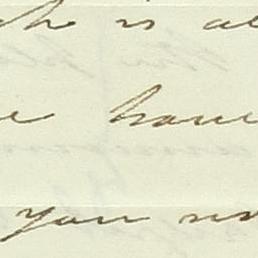 he is al
e have
you no